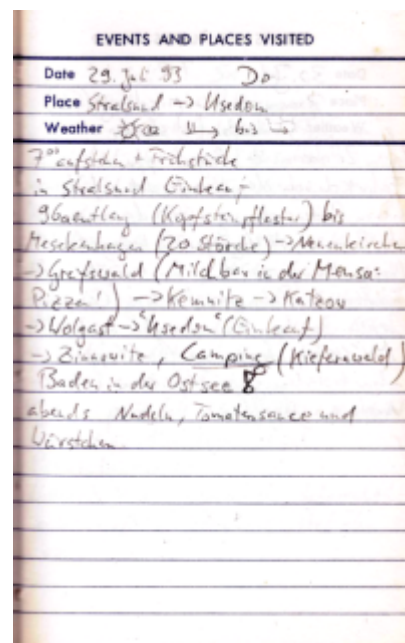 EVENTS AND PLACES VISITED
Date 29. Jul 93 Do
Place Stralsund -> Usedom
Weather bis
7⁰⁰ aufstehen + Frühstück
in Stralsund Einkauf
96 entlang (Kopfsteinpflaster) bis
Mesekenhagen (20 Störche) -> Neuenkirchen
-> Greifswald (Milchbar in der Mensa:
Pizza!) -> Kemnitz -> Katzow
-> Wolgast -> "Usedom" (Einkauf)
-> Zinnowitz, Camping (Kiefernwald)
Baden in der Ostsee
abends Nudeln, Tomatensauce und
Würstchen